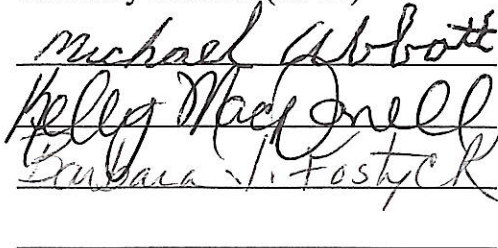 Michael Abbott
Kelly MacDonell
Barbara J. Fostyck